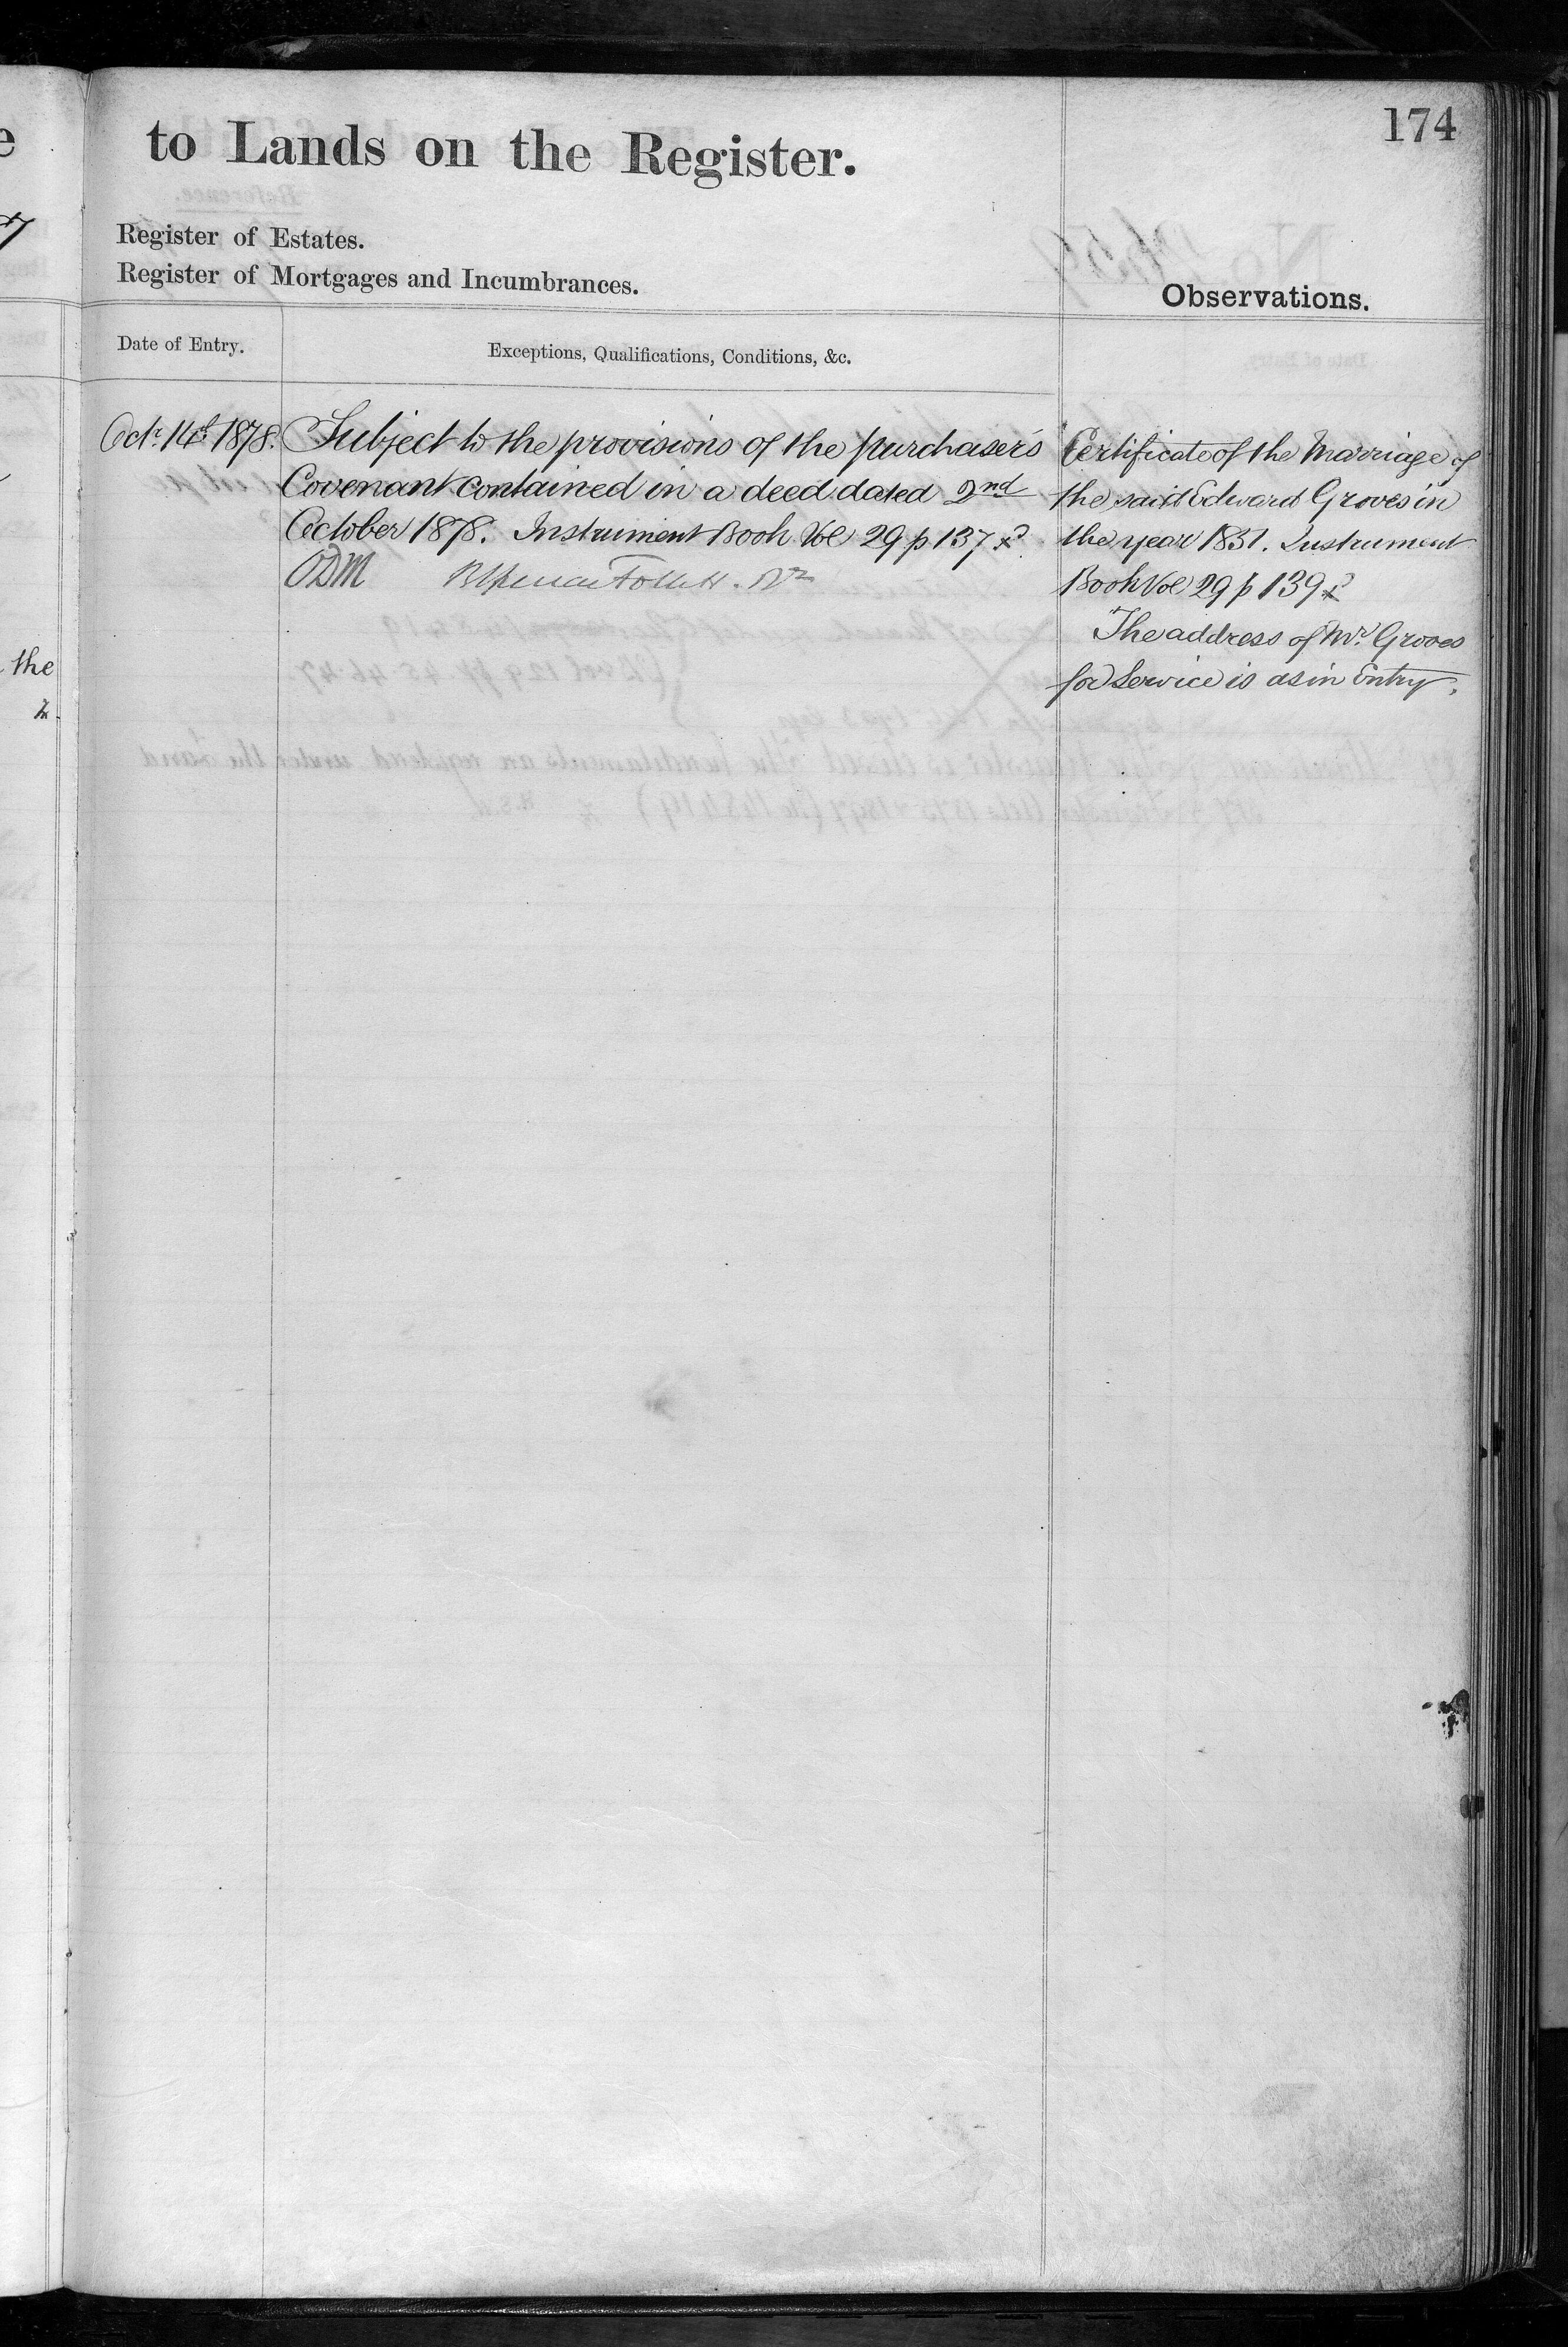 174
to Lands on the Register.
Register of Estates.
Register of Mortgages and Incumbrances.
Observations.
Date of Entry.
Exceptions, Qualifications, Conditions, &c.
Octr. 14th 1878.
Subject to the provisions of the purchaser's
Covenant contained in a deed dated 2nd
October 1878. Instrument Book Vol 29 p 137
ODM
Certificate of the Marriage of
the said Edward Groves in
the year 1831. Instrument
Book Vol 29 p 139
The address of Mr. Groves
for Service is as in Entry.
the